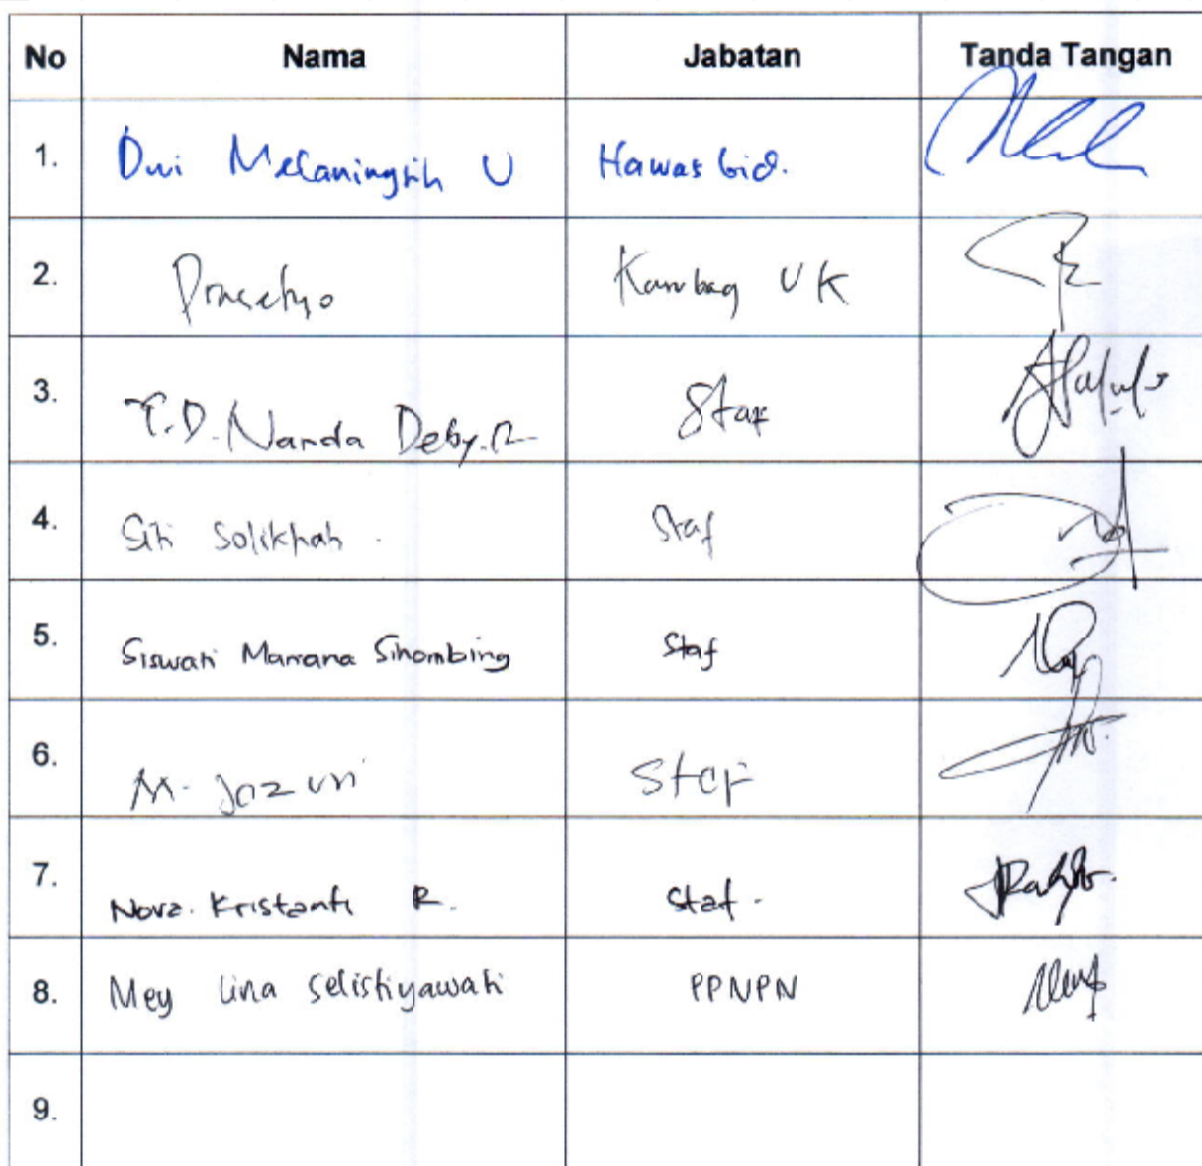 No Nama Jabatan Tanda Tangan
1. Dwi Melaningsih U Hawasbid.
2. Prasetyo Kasubbag UK
3. T.D. Nanda Deby.R Staf
4. Siti Solikhah. Staf
5. Siswati Marrana Sihombing Staf
6. M. Jazuri Staf
7. Nova Kristanti R. Staf.
8. Mey Lina Selistiyawati PPNPN
9.